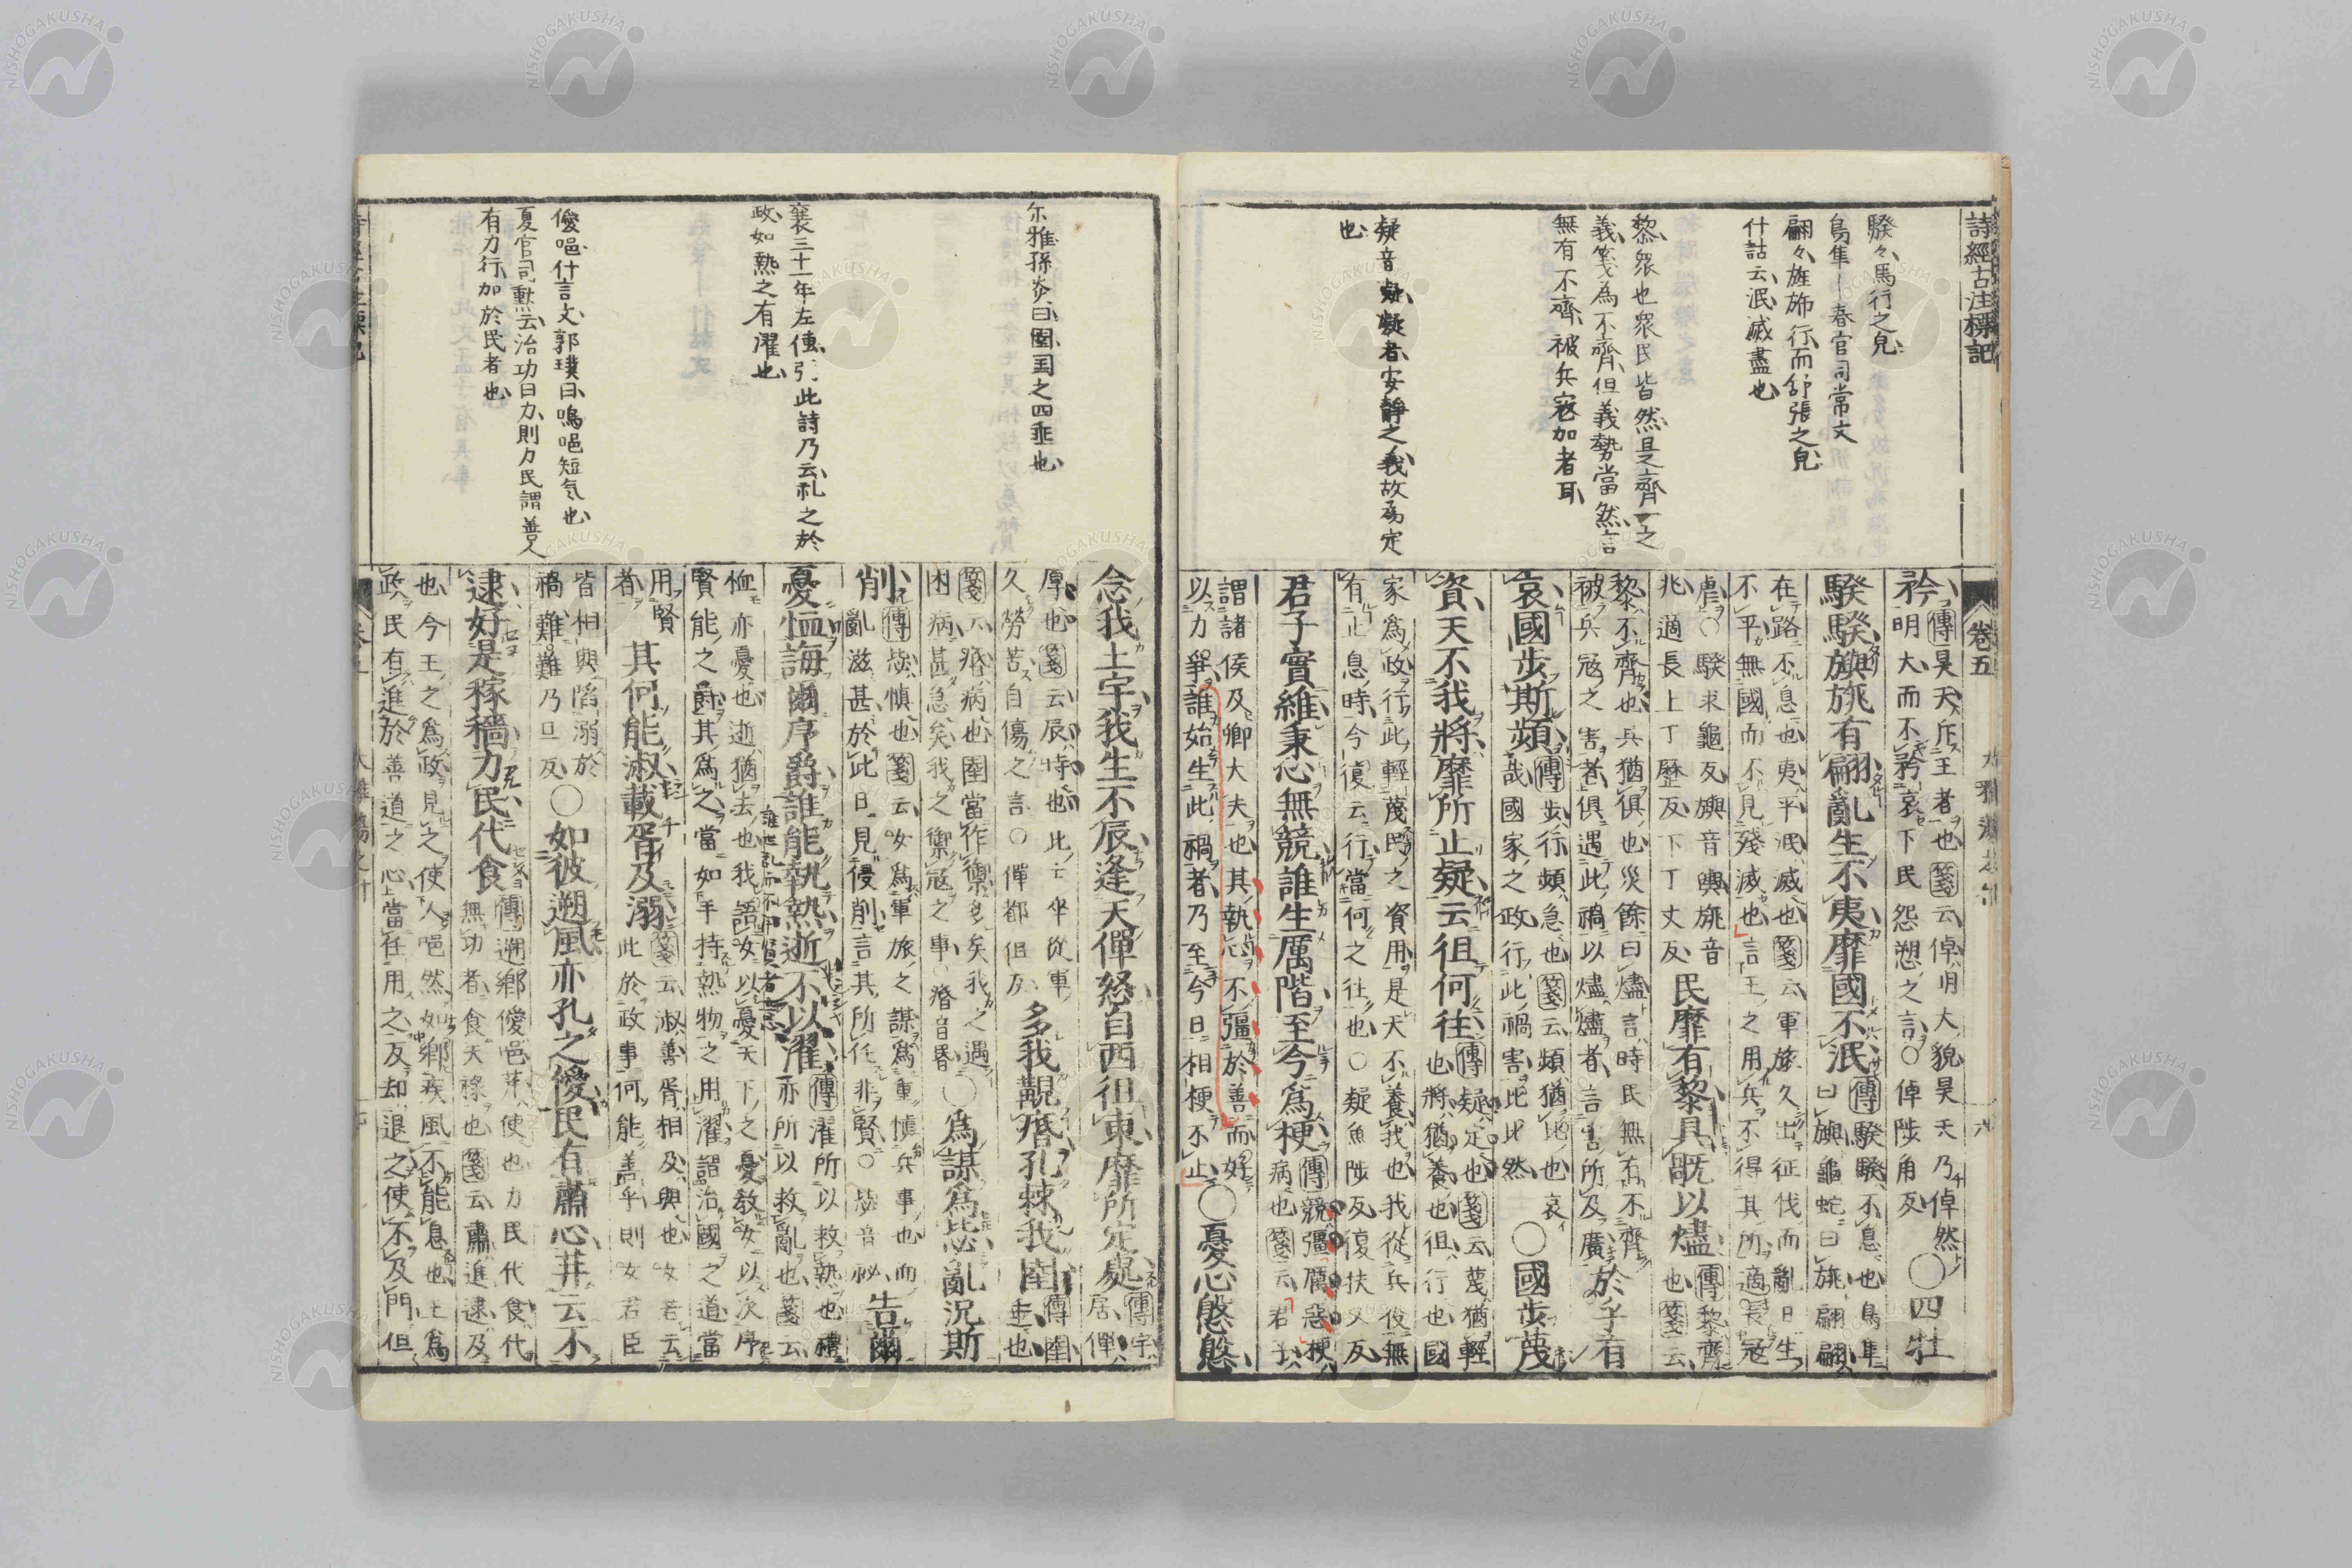 詩經古注標記
騤々馬行之皃
鳥隼｜春官司常文
翩々旌斾行而舒張之皃
什詁云泯滅盡也
黎衆也衆民皆然是齊一之
義箋為不齊但義勢當然言
無有不齊被兵寇加者耳
疑音凝凝者安靜之義故為定
也
卷五
矜傳昊天斥王者也箋云倬明大貌昊天乃倬然
明大而不矜哀下民怨愬之言○倬陟角反○四牡
騤騤旟旐有翩亂生不夷靡國不泯傳騤騤不息也鳥隼
曰旟龜蛇曰旐翩翩
在路不息也夷平泯滅也箋云軍旅久出征伐而亂日生
不平無國而不見殘滅也言王之用兵不得其所適長寇
虐○騤求龜反旟音輿旐音
兆適長上丁歷反下丁丈反民靡有黎具旣以燼傳黎齊
也箋云
黎不齊也具猶俱也災餘曰燼言時民無有不齊
被兵寇之害者俱遇此禍以燼燼者言害所及廣於乎有
哀國步斯頻傳步行頻急也箋云頻猶比也哀
哉國家之政行此禍害比比然○國步蔑
資天不我將靡所止疑云徂何往傳疑定也箋云蔑猶輕
也將猶養也徂行也國
家為政行此輕蔑民之資用是天不養我也我從兵役無
有止息時今復云行當何之往也○疑魚陟反復扶又反
君子實維秉心無競誰生厲階至今為梗傳競彊厲惡梗
病也箋云君子
謂諸侯及卿大夫也其執心不彊於善而好
以力爭誰始生此禍者乃至今日相梗不止○憂心慇慇
尓雅孫炎曰圉国之四垂也
襄三十一年左傳引此詩乃云礼之於
政如熱之有濯也
僾唈什言文郭璞曰嗚唈短気也
夏官司勲云治功曰力則力民謂善人
有力行加於民者也
念我土宇我生不辰逢天僤怒自西徂東靡所定處傳宇
居僤
厚也箋云辰時也此士卒從軍
久勞苦自傷之言○僤都但反多我覯痻孔棘我圉傳圉
垂也
箋云痻病也圉當作禦多矣我之遇
困病甚急矣我之禦寇之事○痻音昬○為謀為毖亂況斯
削傳毖慎也箋云女為軍旅之謀為重慎兵事也而
亂滋甚於此日見侵削言其所任非賢○毖音祕告爾
憂恤誨爾序爵誰能執熱逝不以濯傳濯所以救熱也禮
亦所以救亂也箋云
恤亦憂也逝猶去也我語女以憂天下之憂教女以次序
賢能之爵其為之當如手持熱物之用濯謂治國之道當
用賢
者其何能淑載胥及溺箋云淑善胥相及與也女若云
此於政事何能善乎則女君臣
皆相與陷溺於
禍難○難乃旦反○如彼遡風亦孔之僾民有肅心荓云不
逮好是稼穡力民代食傳遡鄉僾唈荓使也力民代食代
無功者食天祿也箋云肅進逮及
也今王之為政見之使人唈然如鄉疾風不能息也王為
政民有進於善道之心當任用之反却退之使不及門但